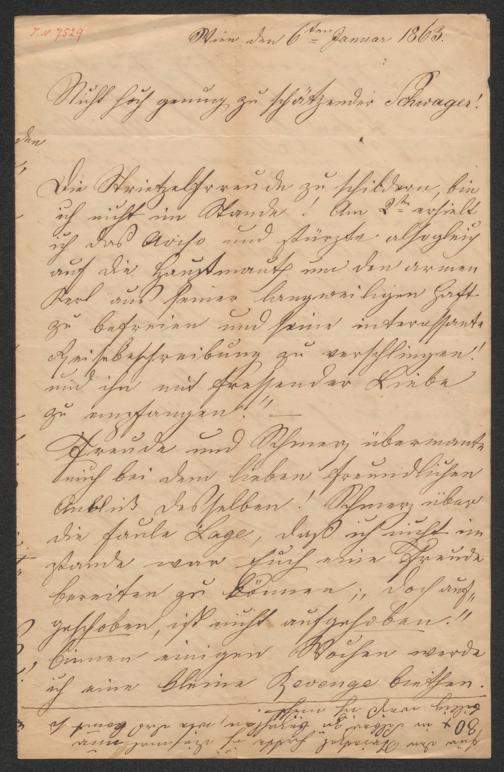 J. N 7529
Wien den 6ten Januar 1863.
Nicht hoch genung zu schätzender Schwager!
Die Strietzelfreude zu schildern, bin
ich nicht im Stande! Am 2t erhielt
ich das Aviso und stürzte alsogleich
auf die Hauptmauth um den armen
Kerl aus seiner langweiligen Haft
zu befreien und seine interessante
Reisebeschreibung zu verschlingen!
und ihn mit fressender Liebe
zu empfangen!"—
Freude und Schmerz übermante
mich bei dem lieben freundlichen
Anblick desselben! Schmerz über
die faule Lage, daß ich nicht im
stande war Euch eine Freude
bereiten zu können; doch auf„
geschoben, ist nicht aufgehoben!"
binnen einigen Wochen werde
ich eine kleine Revenge biethen.